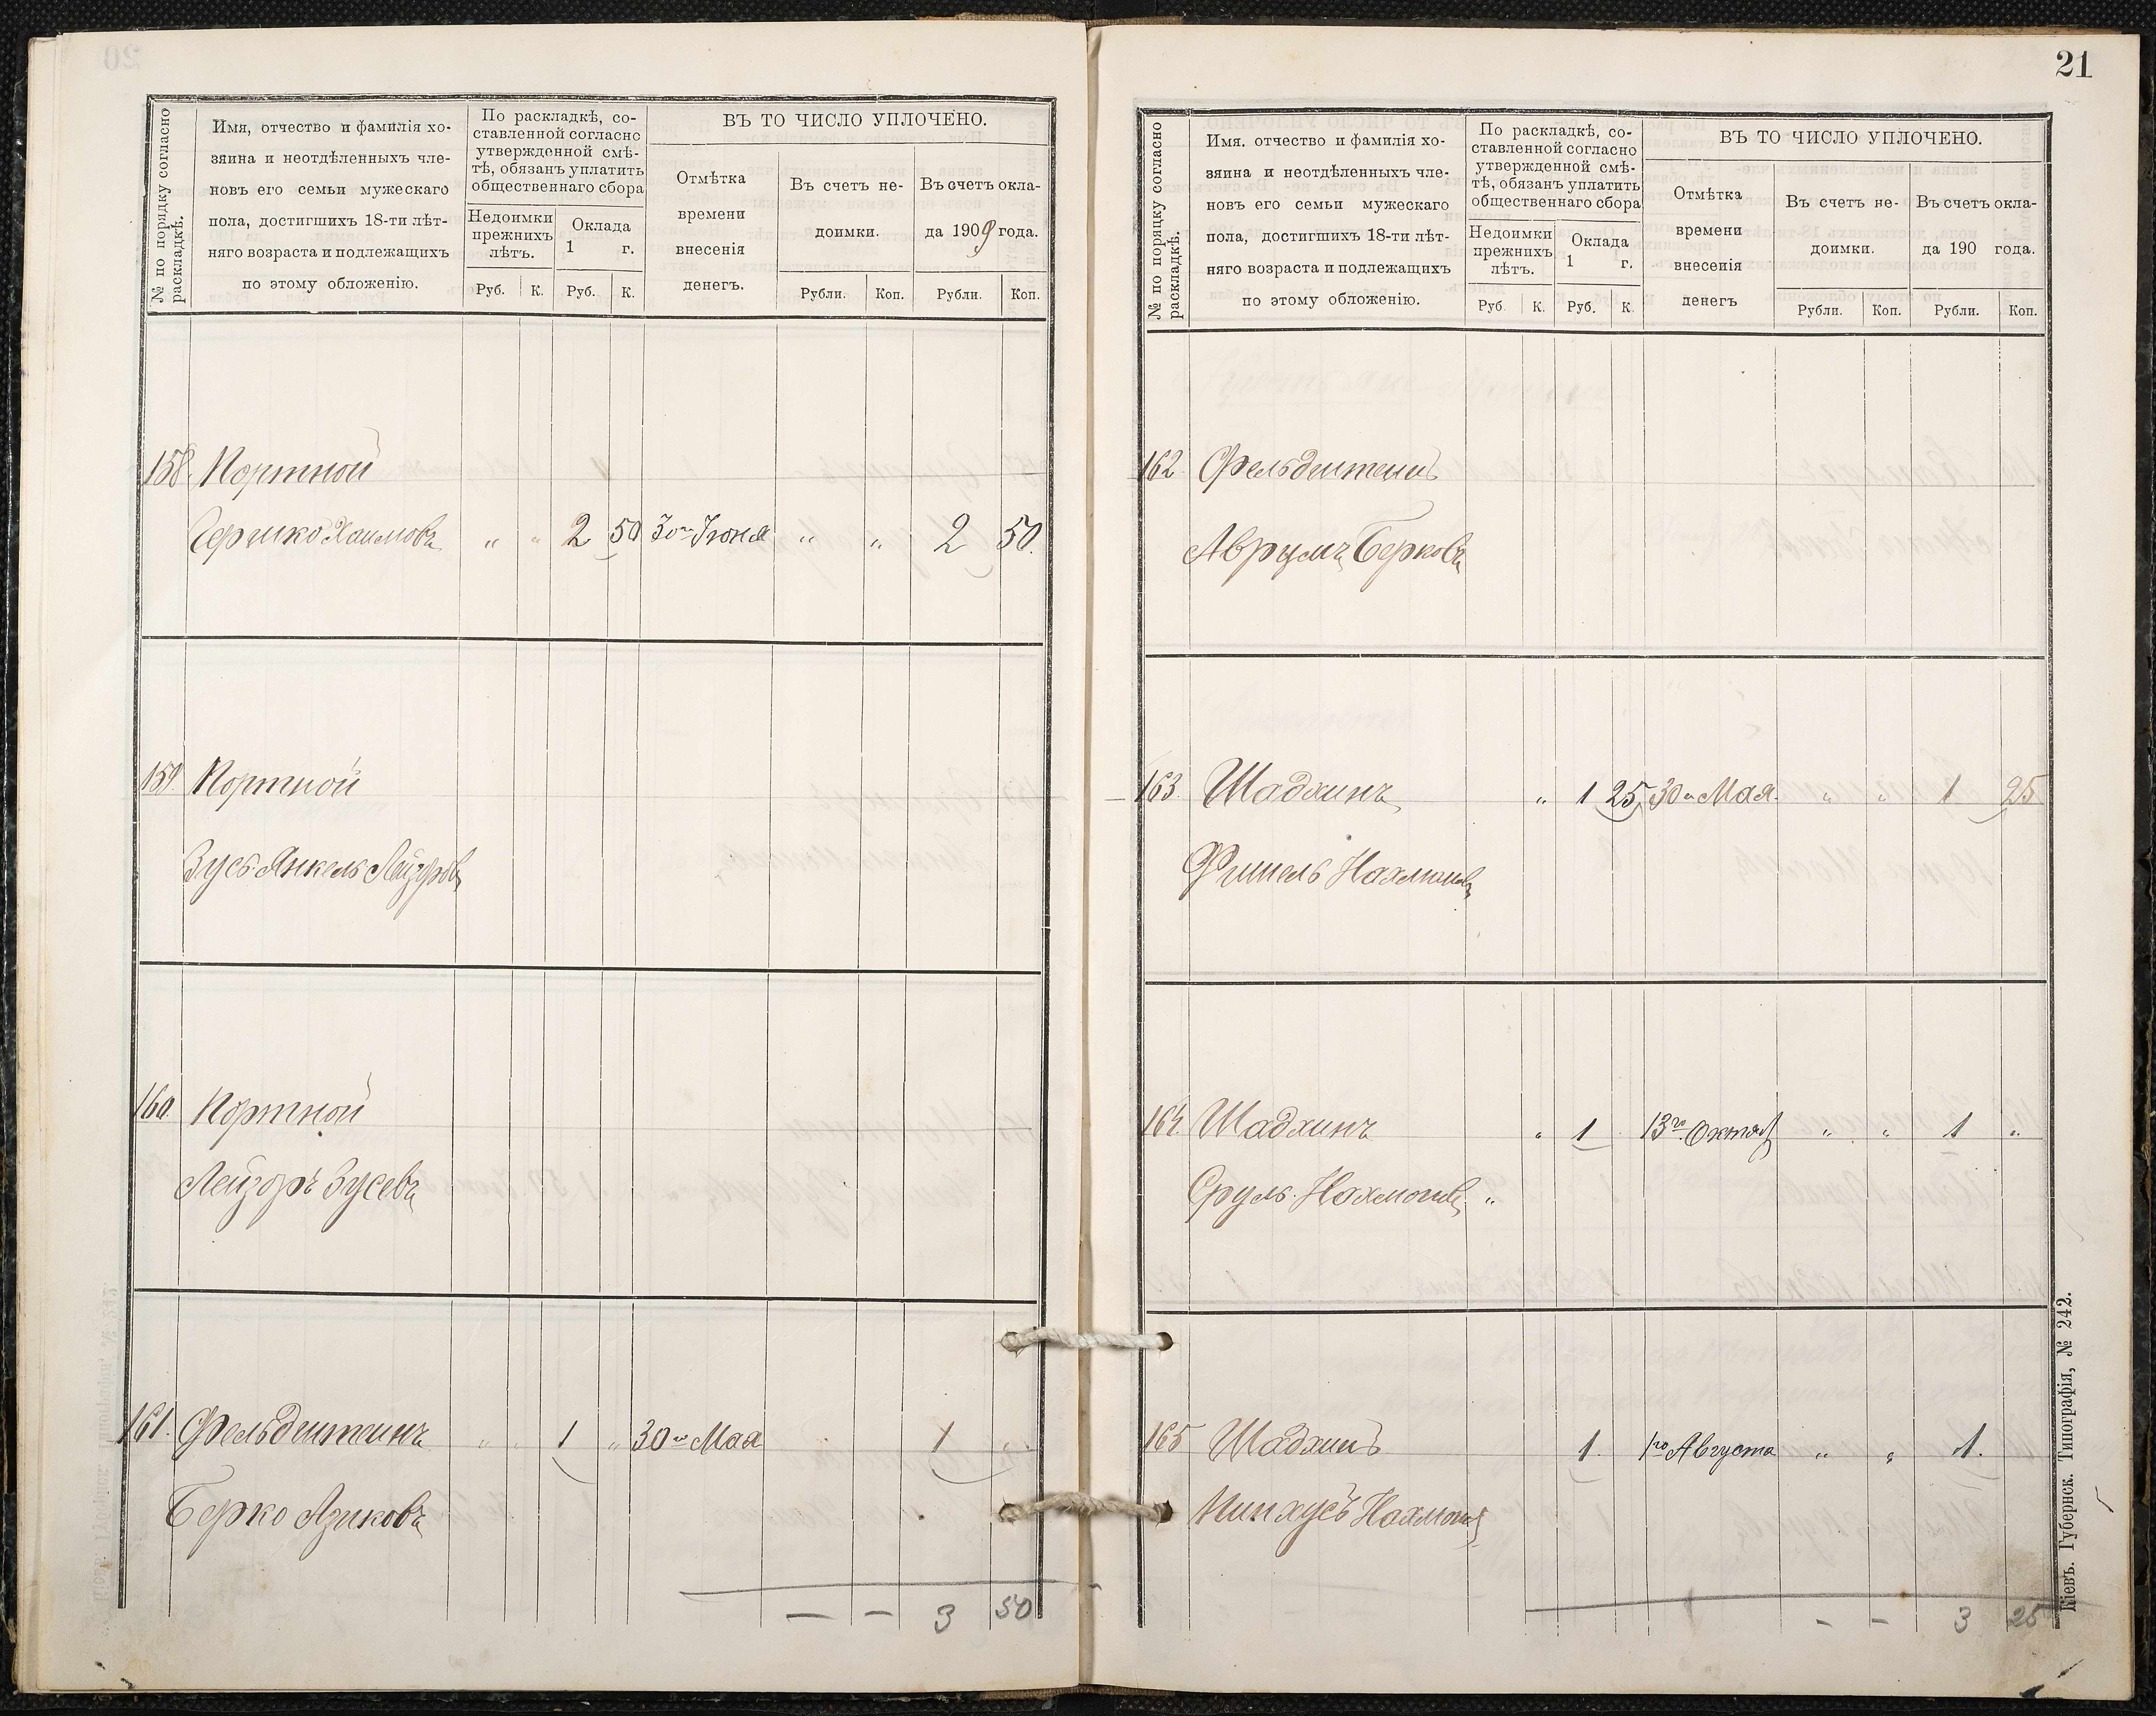 № по порядку согласно раскладкѣ.
Имя, отчество и фамилія хо-
зяина и неотдѣленныхъ чле-
новъ его семьи мужескаго
пола, достигшихъ 18-ти лѣт-
няго возраста и подлежащихъ
по этому обложенію.
По раскладкѣ, со-
ставленной согласно
утвержденной смѣ-
тѣ, обязанъ уплатить
общественнаго сбора
Недоимки
прежнихъ
лѣтъ.
Оклада
1 г.
Руб. К. Руб. К.
ВЪ ТО ЧИСЛО УПЛОЧЕНО.
Отмѣтка
времени
внесенія
денегъ.
Въ счетъ не-
доимки.
Въ счетъ окла-
да 1909 года.
Рубли. Коп. Рубли. Коп.
158. Портной
Гершко Хаимовъ „ „ 2 50 30го Іюня „ „ 2 50.
159. Портной
Зусь-Янкель Лейзоровъ
160. Портной
Лейзоръ Зусевъ
161. Фельдштейнъ „ „ 1 „ 30го Мая 1 „
Берко Азиковъ
— — 3 50
21
№ по порядку согласно раскладкѣ.
Имя. отчество и фамилія хо-
зяина и неотдѣленныхъ чле-
новъ его семьи мужескаго
пола, достигшихъ 18-ти лѣт-
няго возраста и подлежащихъ
по этому обложенію.
По раскладкѣ, со-
ставленной согласно
утвержденной смѣ-
тѣ, обязанъ уплатить
общественнаго сбора
Недоимки
прежнихъ
лѣтъ.
Оклада
1 г.
Руб. К. Руб. К.
ВЪ ТО ЧИСЛО УПЛОЧЕНО.
Отмѣтка
времени
внесенія
денегъ
Въ счетъ не-
доимки.
Въ счетъ окла-
да 190 года.
Рубли. Коп. Рубли. Коп.
162. Фельдштейнъ
Аврумъ Берковъ
163. Шадхинъ „ 1 25 30го Мая. „ „ 1 25
Фишель Нахмановъ
164. Шадхинъ „ 1 13го Октяб „ „ 1 „
Сруль Нахмановъ „
165 Шадхинъ 1. 1го Августа „ „ 1.
Пинхусъ Нахманов
— — 3 25
Кіевъ. Губернск. Типографія, № 242.